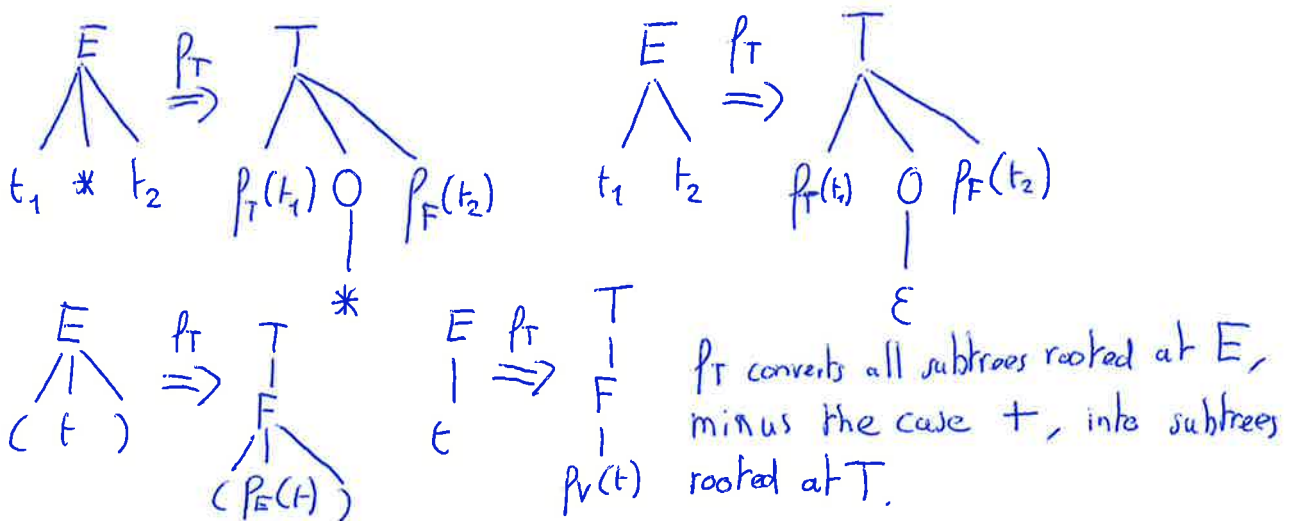 E ρT T
⇒
t1 * t2 ρT(t1) O ρF(t2)
*
E ρT T
⇒
t1 t2 ρT(t1) O ρF(t2)
ε
E ρT T
⇒
( t ) F
( ρE(t) )
E ρT T
⇒
t F
ρV(t)
ρT converts all subtrees rooted at E,
minus the case +, into subtrees
rooted at T.